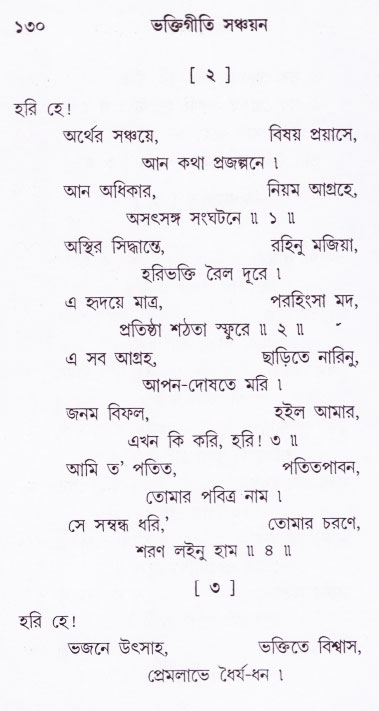 ১৩০ ভক্তিগীতি সঞ্চয়ন
[ ২ ]
হরি হে!
অর্থের সঞ্চয়ে, বিষয় প্রয়াসে,
আন কথা প্রজল্পনে ।
আন অধিকার, নিয়ম আগ্রহে,
অসৎসঙ্গ সংঘটনে ॥ ১ ॥
অস্থির সিদ্ধান্তে, রহিনু মজিয়া,
হরিভক্তি রৈল দূরে ।
এ হৃদয়ে মাত্র, পরহিংসা মদ,
প্রতিষ্ঠা শঠতা স্ফুরে ॥ ২ ॥
এ সব আগ্রহ, ছাড়িতে নারিনু,
আপন-দোষতে মরি ।
জনম বিফল, হইল আমার,
এখন কি করি, হরি! ৩ ॥
আমি ত’ পতিত, পতিতপাবন,
তোমার পবিত্র নাম ।
সে সম্বন্ধ ধরি,’ তোমার চরণে,
শরণ লইনু হাম ॥ ৪ ॥
[ ৩ ]
হরি হে!
ভজনে উৎসাহ, ভক্তিতে বিশ্বাস,
প্রেমলাভে ধৈর্য-ধন ।